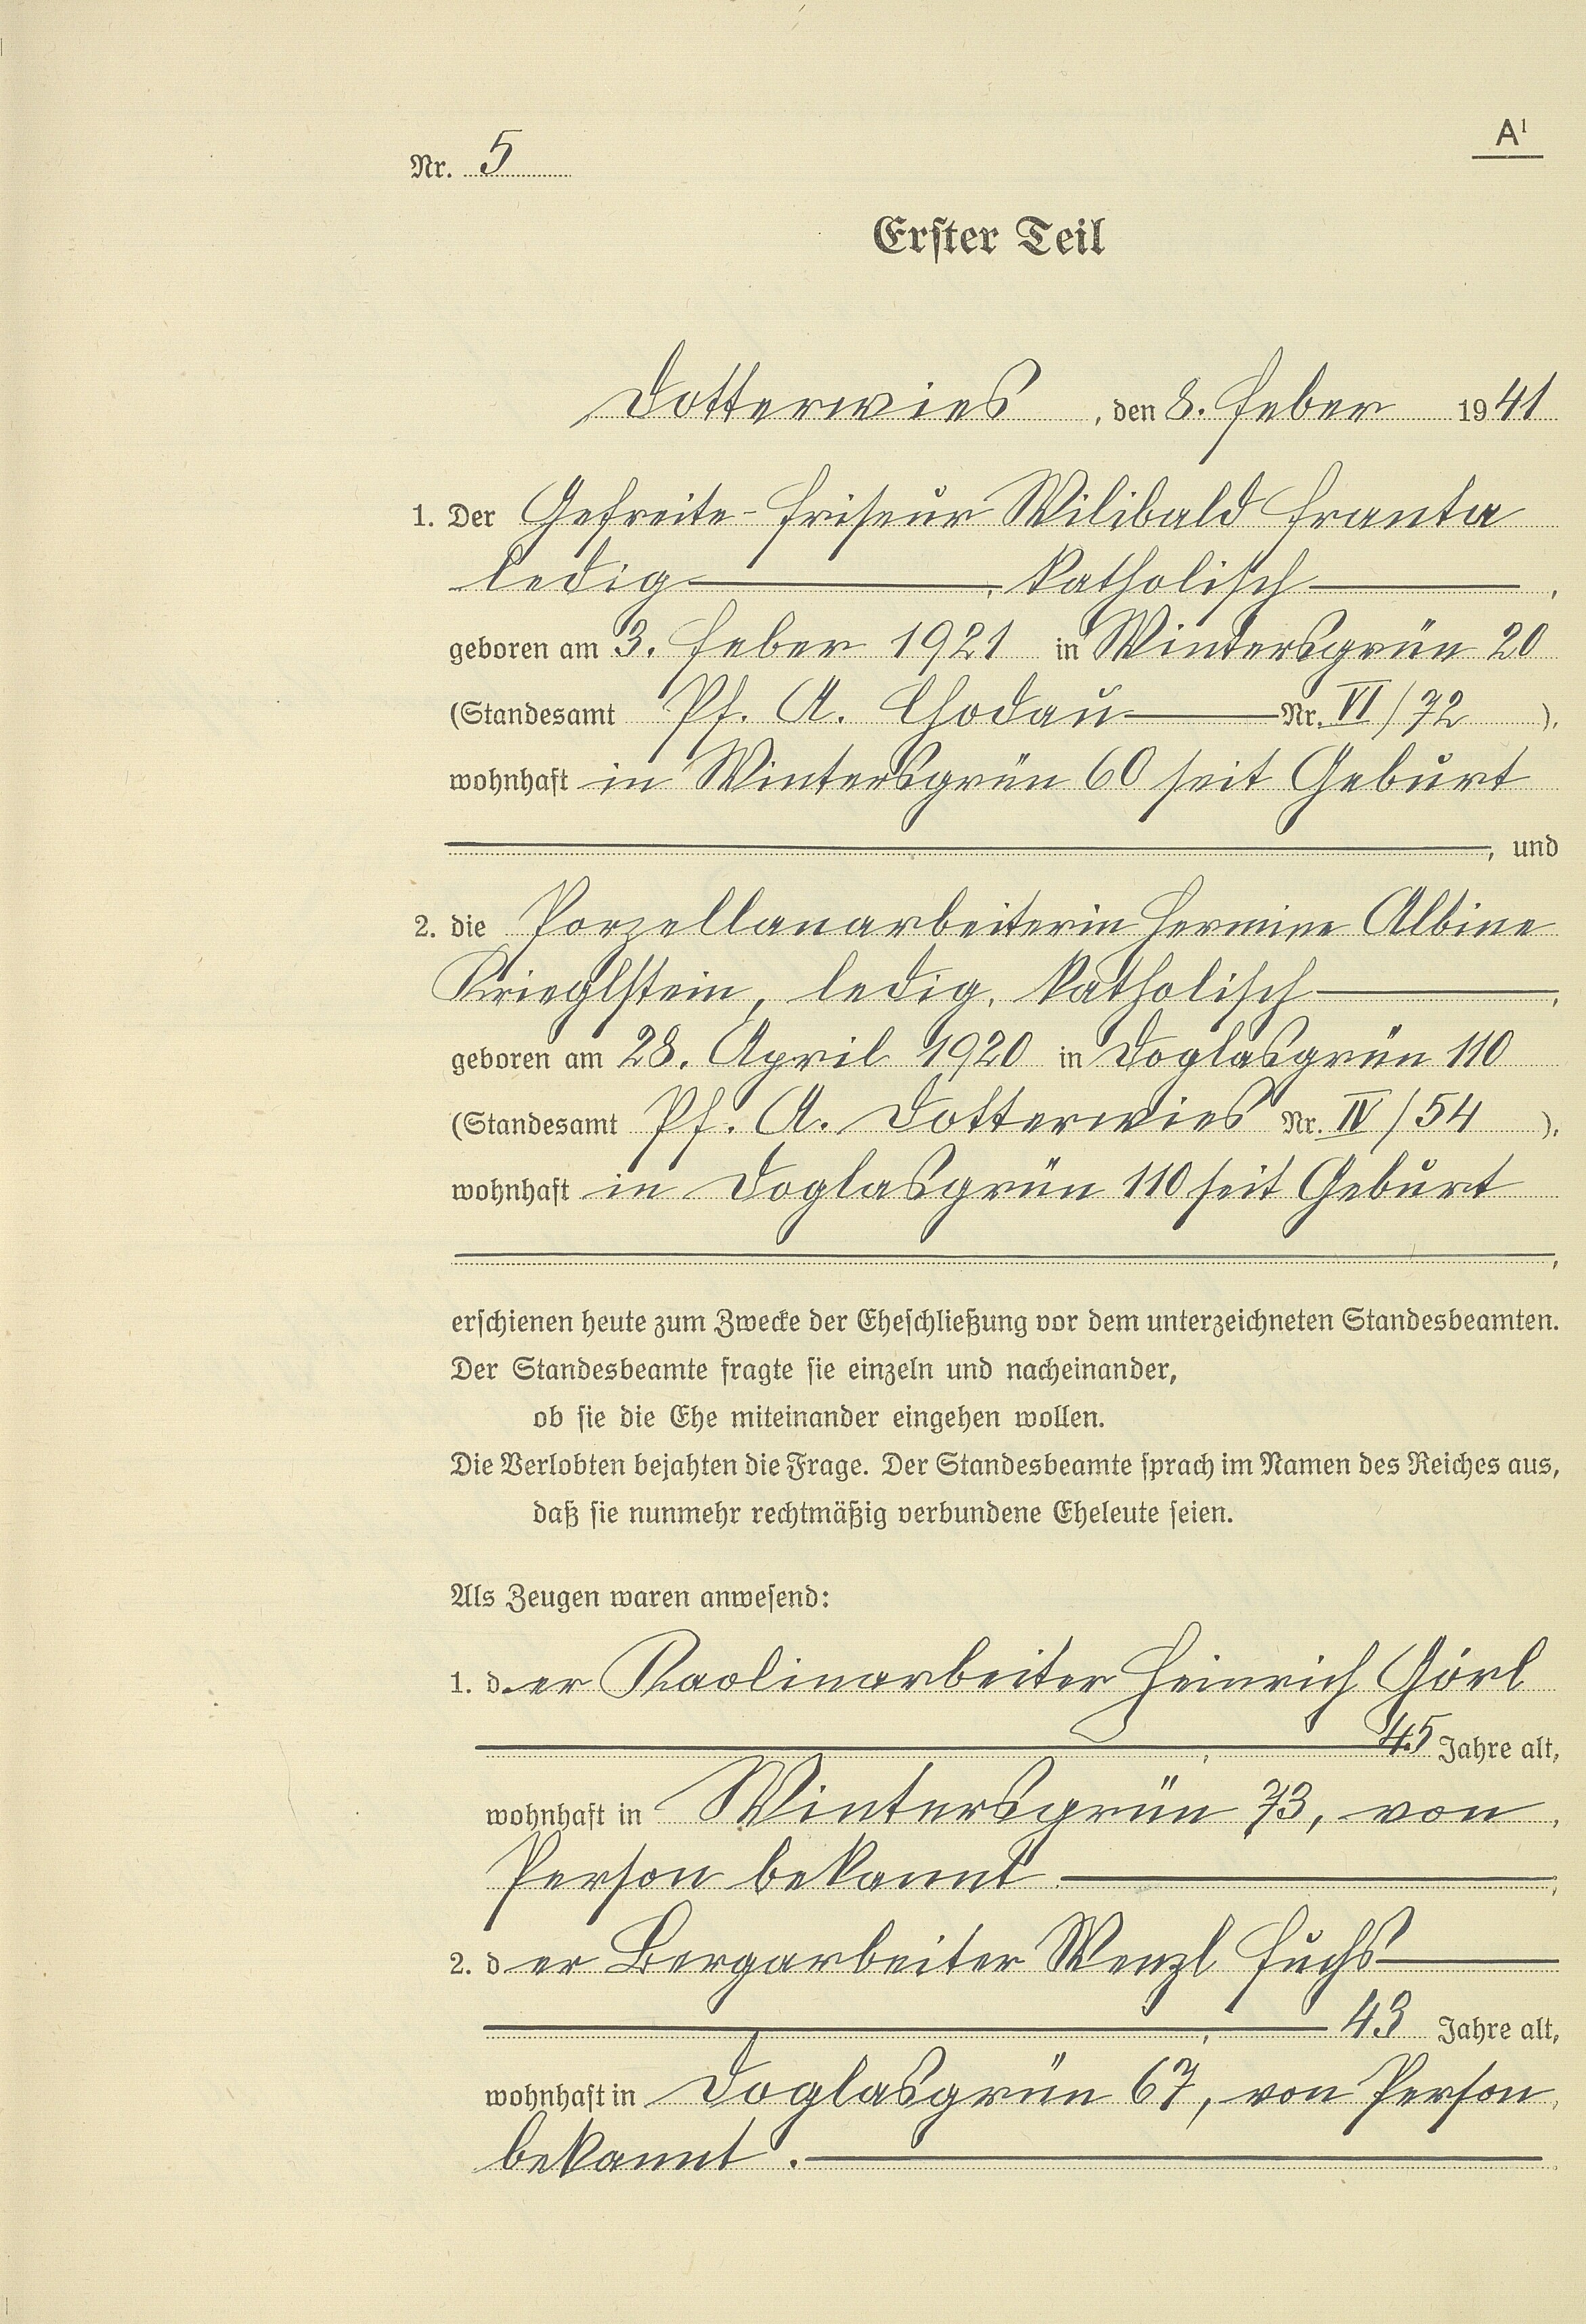 A¹
Nr. 5
Erster Teil
Dotterwies, den 8. Feber 1941
1. Der Gefreite-Friseur Wilibald Franta
ledig, katholisch,
geboren am 3. Feber 1921 in Wintersgrün 20
(Standesamt Pf. A. Chodau Nr. VI/72),
wohnhaft in Wintersgrün 60 seit Geburt
, und
2. die Porzellanarbeiterin Hermine Albine
Krieglstein, ledig, katholisch,
geboren am 28. April 1920 in Doglasgrün 110
(Standesamt Pf. A. Dotterwies Nr. IV/54),
wohnhaft in Doglasgrün 110 seit Geburt
,
erschienen heute zum Zwecke der Eheschließung vor dem unterzeichneten Standesbeamten.
Der Standesbeamte fragte sie einzeln und nacheinander,
ob sie die Ehe miteinander eingehen wollen.
Die Verlobten bejahten die Frage. Der Standesbeamte sprach im Namen des Reiches aus,
daß sie nunmehr rechtmäßig verbundene Eheleute seien.
Als Zeugen waren anwesend:
1. der Kaolinarbeiter Heinrich Görl
, 45 Jahre alt,
wohnhaft in Wintersgrün 73, von,
Person bekannt;
2. der Bergarbeiter Wenzl Fuchs
, 43 Jahre alt,
wohnhaft in Doglasgrün 67, von Person,
bekannt.